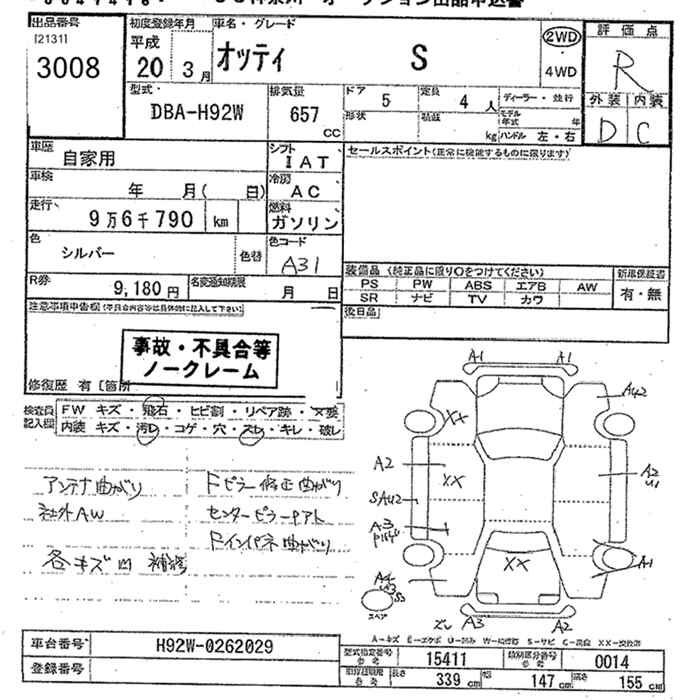 出品番号
[2131]
3008
初度登録年月
平成
20 3月
車名・グレード
オッティ S
2WD
・
4WD
評価点
R
外装 内装
D C
型式
DBA-H92W
排気量
657
CC
ドア 5
定員 4 人
形状
積載 kg
ディーラー・並行
モデル年式 年
ハンドル 左・右
車歴 自家用
シフト IAT
セールスポイント(正常に機能するものに限ります)
車検 年 月( 日)
冷房 AC
走行 9万6千790 km
燃料 ガソリン
色 シルバー 色替
色コード A31
R券 9,180円
名変通知期限 月 日
装備品 (純正品に限り○をつけてください)
新車保証書
PS PW ABS エアB AW
SR ナビ TV カワ
有・無
注意事項申告欄(不具合内容等は具体的に記入して下さい)
後日品
事故・不具合等
ノークレーム
修復歴 有 [箇所
検査員記入欄
FW キズ・飛石・ヒビ割・リペア跡・X要
内装 キズ・汚レ・コゲ・穴・スレ・キレ・破レ
アンテナ曲がり
社外AW
各キズ凹 補修
Fピラー修正曲がり
センターピラーPアト
Fインパネ曲がり
A1 A1
XX
A42
A2
XX
A2
U1
SAU2
A3
XX
A1
A4
S3
スペア
A3 A2
A-キズ E-エクボ U-凹み W-補修跡 S-サビ C-腐食 XX-交換済
車台番号 H92W-0262029
登録番号
型式指定番号 参考 15411
類別区分番号 参考 0014
長さ 339 cm
幅 147 cm
高さ 155 cm